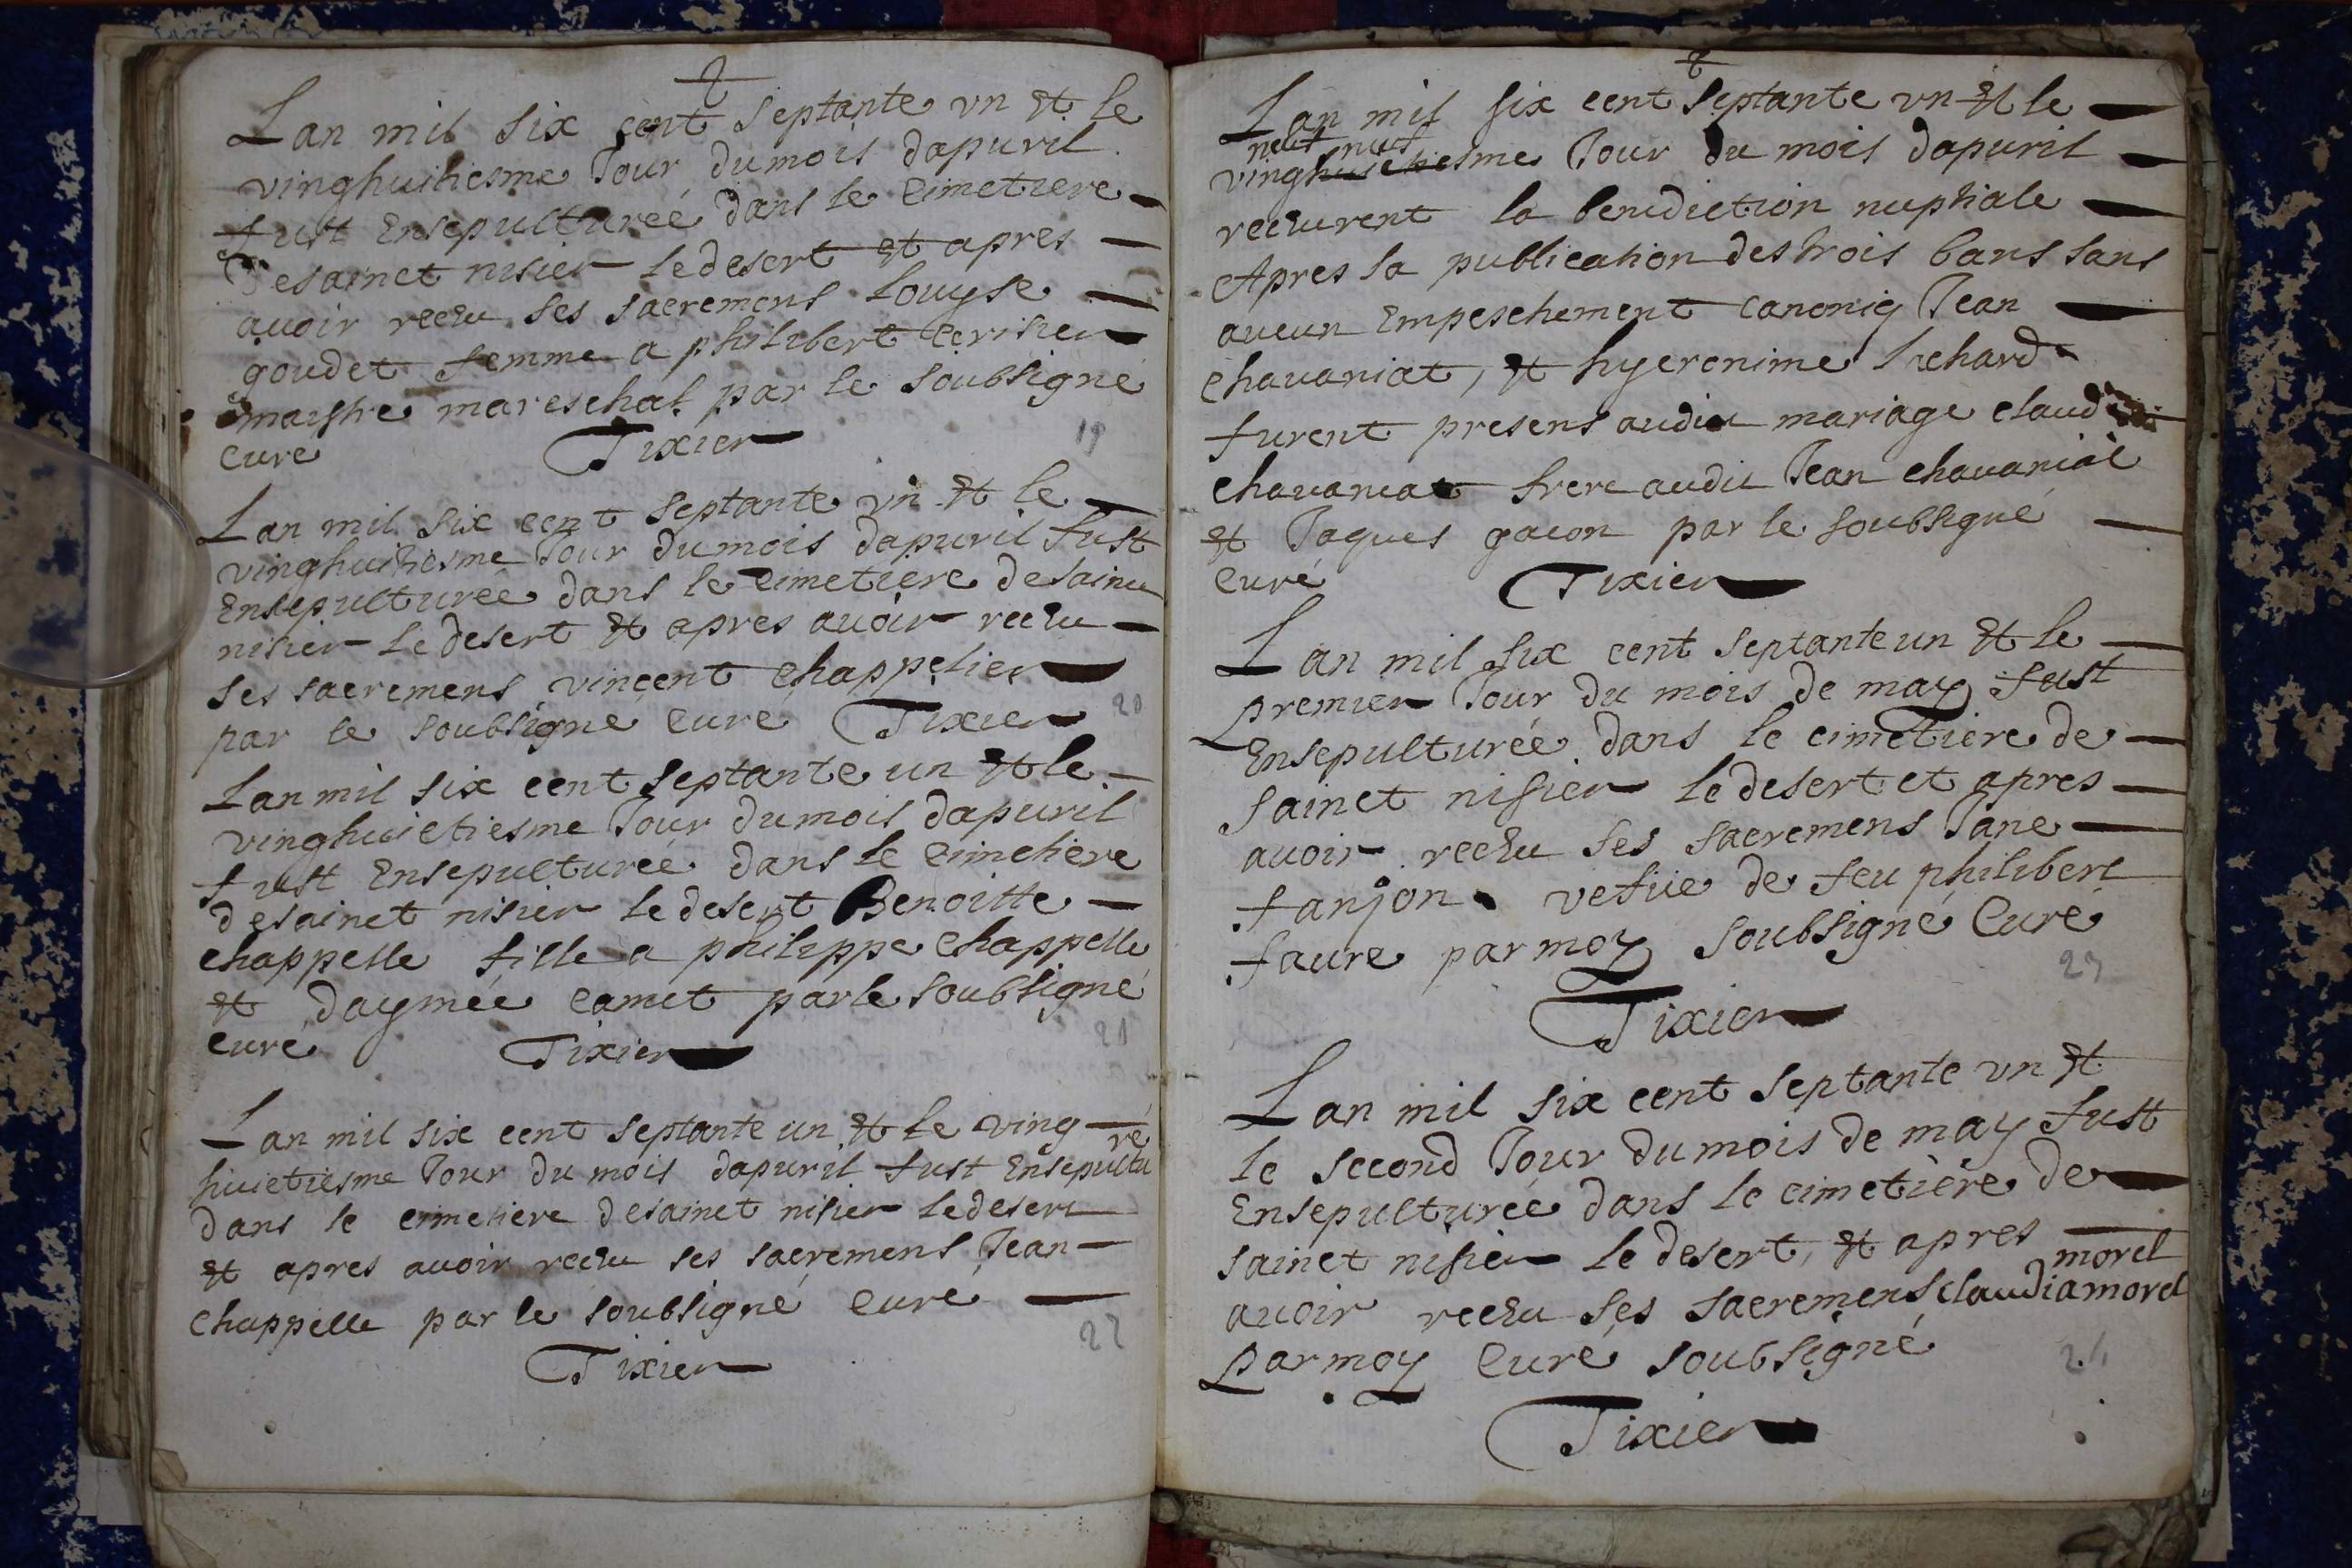 Lan mil six cent septante vn et le
vinghuitiesme Jour du mois dapuril
fust Ensepulturée dans le Cimetiere
de sainct nisier le desert et apres
auoir rechu ses sacremens Louyse
goudet femme a philibert Cerisier
maistre mareschal par le soubsigné
Curé Tixier
19
Lan mil six cent septante vn et le
vinghuitiesme Jour du mois dapuril fust
Ensepulturée dans le Cimetiere de sainct
nisier le desert et apres auoir rechu
ses sacremens vincent chappelier
par le soubsigné Curé Tixier
20
Lan mil six cent septante un et le
vinghuictiesme Jour du mois dapuril
fust Ensepulturée dans le Cimetiere
de sainct nisier le desert Benoitte
chappelle fille a philippe chappelle
et daymée Camet par le soubsigné
curé Tixier
21
Lan mil six cent septante un et le ving
huictiesme Jour du mois dapuril fust Ensepultu
ré
dans le cimetiere de sainct nisier le desert
et apres auoir rechu ses sacremens Jean
Chappelle par le soubsigné Curé
22
Tixier
Lan mil six cent septante vn et le
neuf
vinghuictiesme Jour du mois dapuril
rechurent la benediction nuptiale
Apres la publication des trois bans sans
aucun Empeschement canoniq Jean
chauaniat, et hyeronime
furent presens audit mariage claude
chauaniat frere audit Jean chauaniat
et Jaques gacon par le soubsigné
Curé Tixier
Lan mil six cent septante un et le
premier Jour du mois de may fust
Ensepulturée dans le cimetiere de
sainct nisier le desert et apres
auoir rechu ses sacremens Jane
fanjon vefue de feu philibert
faure par moy soubsigné Curé
23
Tixier
Lan mil six cent septante vn et
le second Jour du mois de may fust
Ensepulturée dans le cimetière de
sainct nisier le desert, et apres
morel
auoir rechu ses sacremens claudia morel
par moy Curé soubsigné
24
Tixier